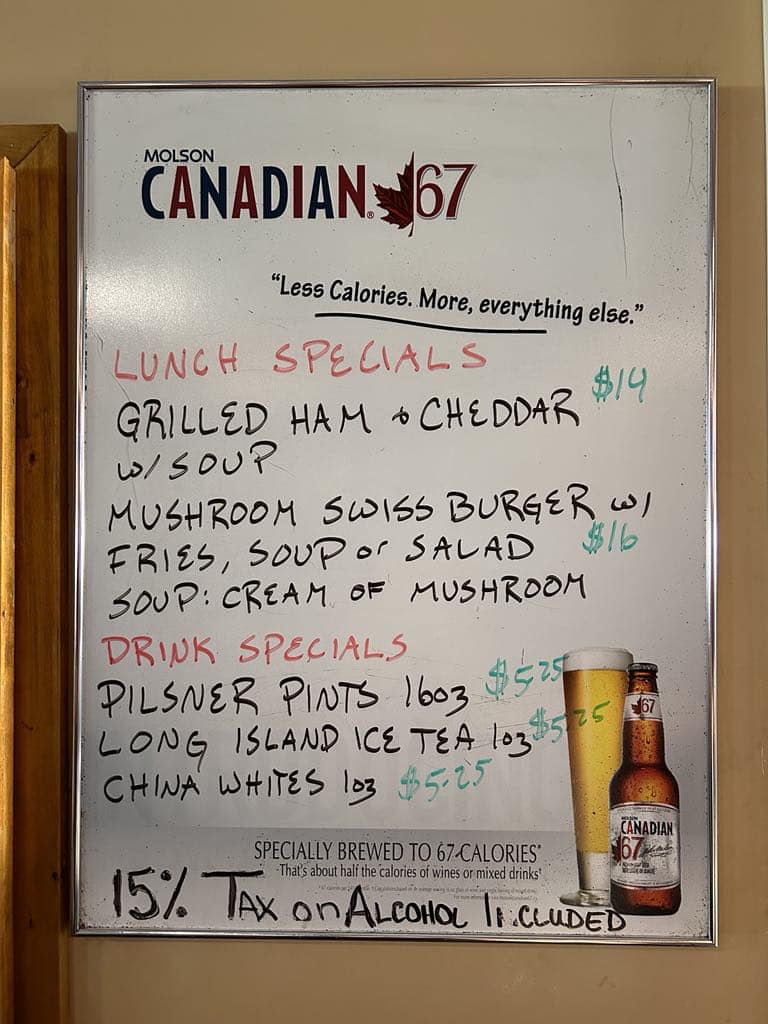 MOLSON
CANADIAN® 67
"Less Calories. More, everything else."
LUNCH SPECIALS
GRILLED HAM & CHEDDAR $14
W/ SOUP
MUSHROOM SWISS BURGER W/
FRIES, SOUP or SALAD $16
SOUP: CREAM OF MUSHROOM
DRINK SPECIALS
PILSNER PINTS 16oz $5.25
LONG ISLAND ICE TEA 1oz $5.25
CHINA WHITES 1oz $5.25
67
MOLSON
CANADIAN
67
SPECIALLY BREWED TO 67 CALORIES*
That's about half the calories of wines or mixed drinks†
15% TAX on ALCOHOL INCLUDED